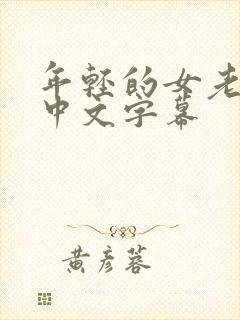 年轻的女老
中文字幕
黄彦蓉